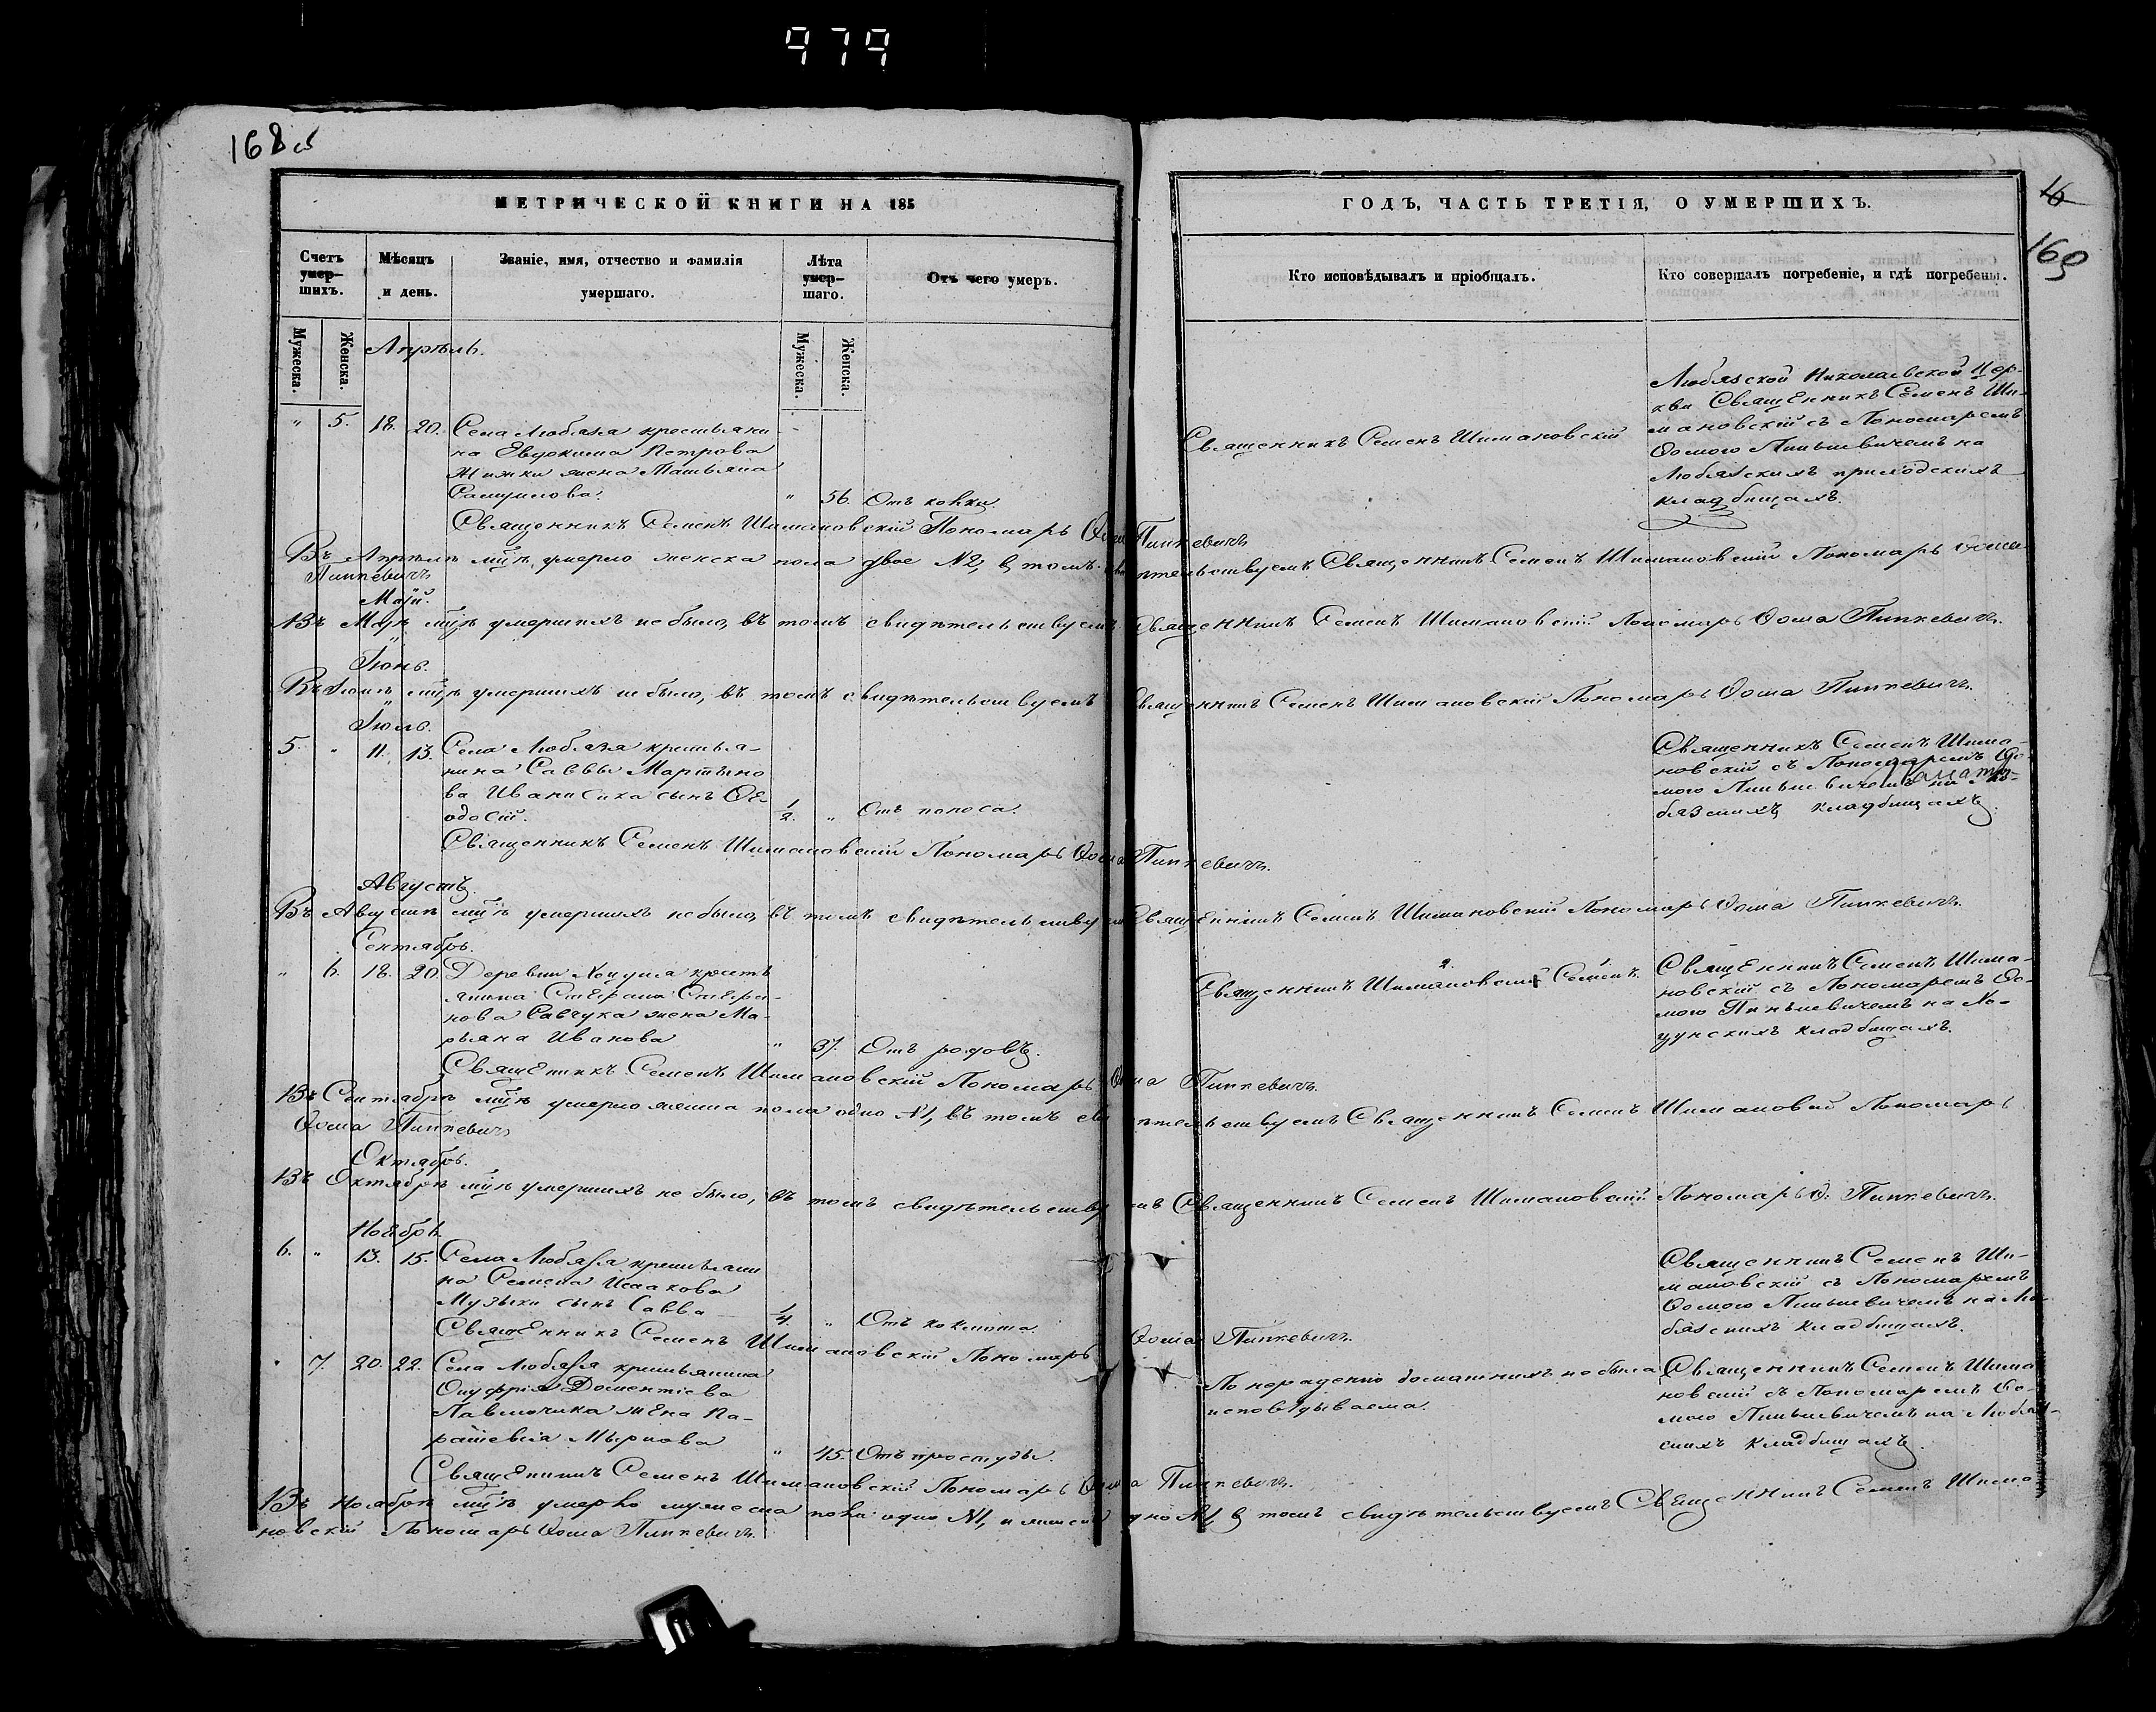 979
168 об
МЕТРИЧЕСКОЙ КНИГИ НА 185
ГОДЪ, ЧАСТЬ ТРЕТІЯ, О УМЕРШИХЪ.
16
169
Счетъ умер-шихъ.
Мѣсяцъ и день.
Званіе, имя, отчество и фамилія умершаго.
Лѣта умер-шаго.
Отъ чего умеръ.
Кто исповѣдывалъ и пріобщалъ.
Кто совершалъ погребеніе, и гдѣ погребены.
Мужеска.
Женска.
Мужеска.
Женска.
Апрѣль.
" 5. 18. 20. Села Любязя крестьяни-
на Евдокима Петрова
жена Татьяна
Самуилова. " 56.
Священникъ Семенъ Шимановскій
Любязской Николаевской Цер-
кви Священникъ Семенъ Ши-
мановскій съ Пономаремъ
Ѳомою Пинькевичемъ на
Любязскихъ приходскихъ
кладбищахъ.
Священникъ Семенъ Шимановскій Пономарь Ѳома Пинкевичъ
Въ Апрѣлѣ мцѣ умерло женска пола двое №2, в томъ свидѣтельствуемъ Священникъ Семенъ Шимановскій Пономарь Ѳома
Пинкевичъ
Маій.
Въ Маѣ мцѣ умершихъ не было, въ томъ свидѣтельствуемъ Священникъ Семенъ Шимановскій Пономарь Ѳома Пинкевичъ.
Іюнь.
Въ Іюнѣ мцѣ умершихъ не было, въ томъ свидѣтельствуемъ Священникъ Семенъ Шимановскій Пономарь Ѳома Пинкевичъ.
Іюль.
5. " 11. 13. Села Любязя крестья-
нина Саввы Мартыно
ва Иванисика сынъ Ѳе-
одосій. 1/2. " Отъ поноса.
Священникъ Семенъ Шима-
новскій съ Пономаремъ Ѳо-
мою Пинькевичемъ на Лю-
бязскихъ кладбищахъ.
Священникъ Семенъ Шимановскій Пономарь Ѳома Пинкевичъ.
Августъ.
Въ Августѣ мцѣ умершихъ не было, въ томъ свидѣтельствуемъ Священникъ Семенъ Шимановскій Пономарь Ѳома Пинкевичъ.
Сентябрь.
" 6. 18. 20. Деревни Хоцуна кресть
янина Стефана Стефа-
нова Савчука жена Ма-
рьяна Иванова " 37. Отъ родовъ.
Священникъ Шимановскій Семенъ.
Священникъ Семенъ Шима-
новскій съ Пономаремъ Ѳо-
мою Пинькевичемъ на Хо-
цунскихъ кладбищахъ.
Священникъ Семенъ Шимановскій Пономарь Ѳома Пинкевичъ.
Въ Сентябрѣ мцѣ умерло женска пола одно №1, въ томъ свидѣтельствуемъ Священникъ Семенъ Шимановскій Пономарь
Ѳома Пинкевичъ
Октябрь.
Въ Октябрѣ мцѣ умершихъ не было, въ томъ свидѣтельствуемъ Священникъ Семенъ Шимановскій Пономарь Ѳ. Пинкевичъ.
Ноябрь.
6. " 13. 15. Села Любязя крестьяни
на Семена Исаакова
Музыки сынъ Савва 1/4. " Отъ коклюша.
Священникъ Семенъ Ши-
мановскій съ Пономаремъ
Ѳомою Пинькевичемъ на Лю-
бязскихъ кладбищахъ.
Священникъ Семенъ Шимановскій Пономарь Ѳома Пинкевичъ.
" 7. 20. 22. Села Любязя крестьянина
Онуфрія Доментіева
Павлючика жена Па-
раскевія Маркова " 45. Отъ простуды.
По нераденію домашнихъ не была
исповѣдываема.
Священникъ Семенъ Шима
новскій съ Пономаремъ Ѳо-
мою Пинькевичемъ на Любяз-
скихъ кладбищахъ.
Священникъ Семенъ Шимановскій Пономарь Ѳома Пинкевичъ.
Въ Ноябрѣ мцѣ умерло мужеска пола одно №1, и женска одно №1, в томъ свидѣтельствуемъ Священникъ Семенъ Шима
новскій Пономарь Ѳома Пинкевичъ.